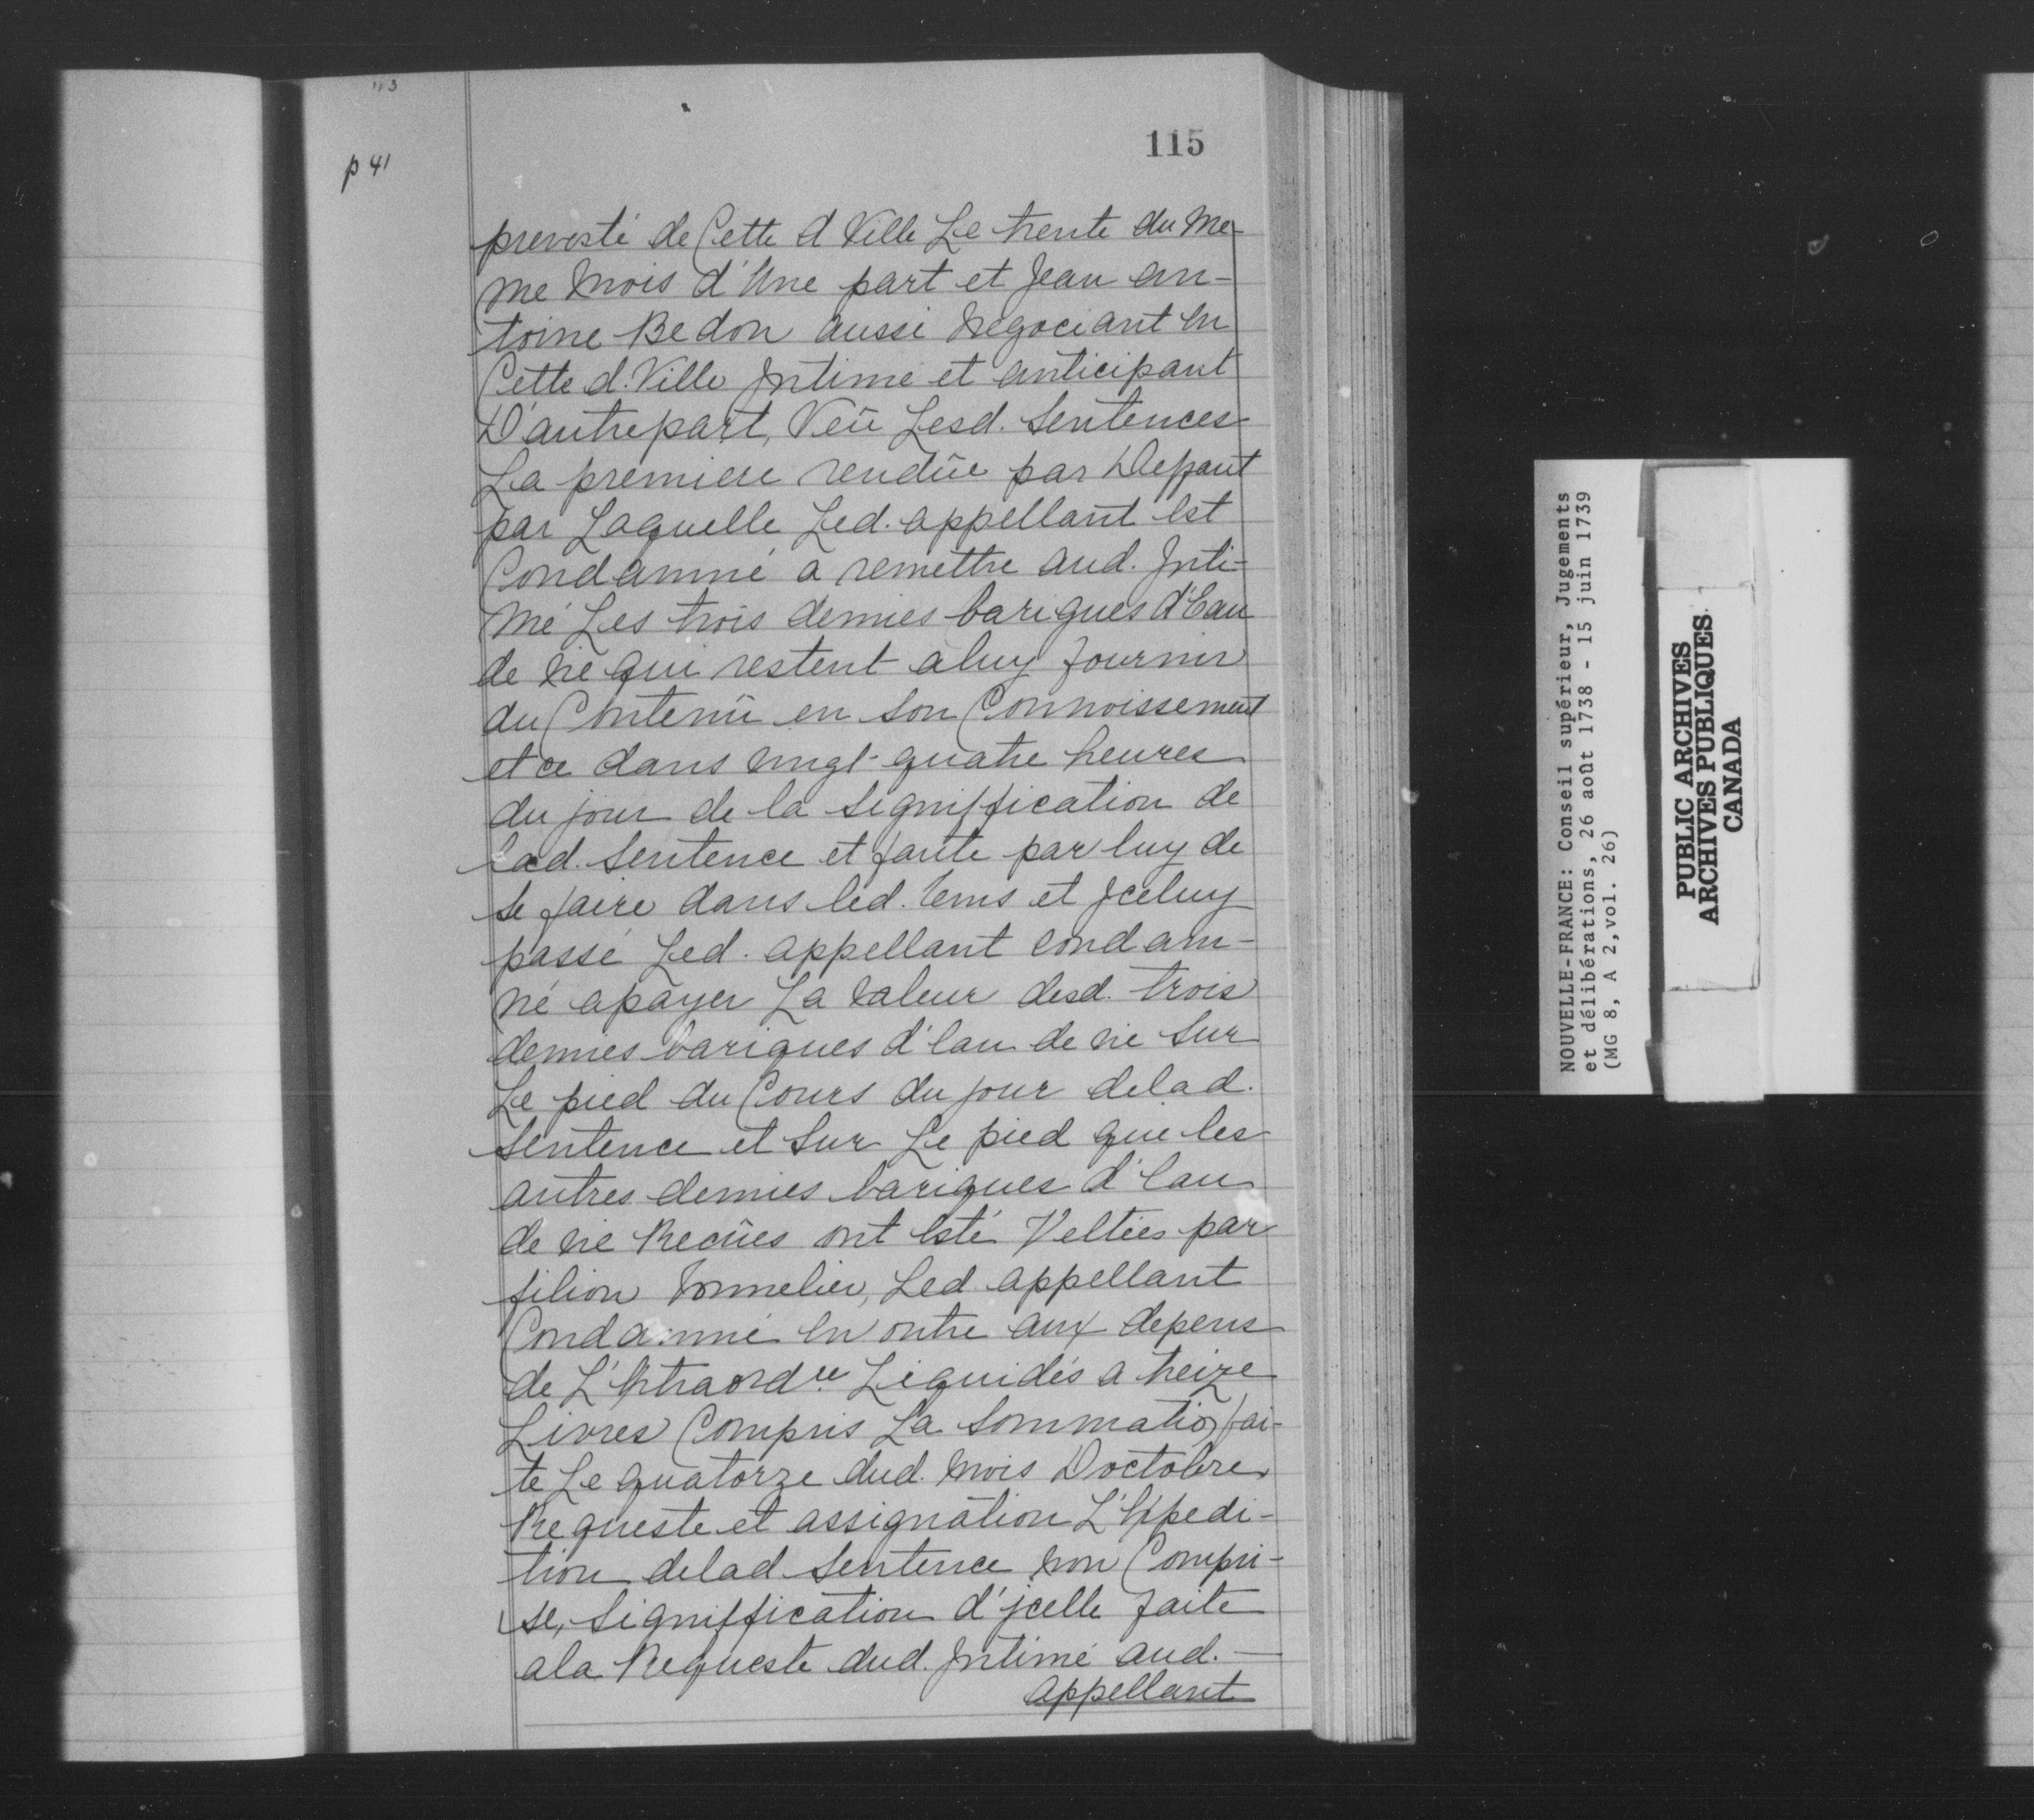 113
115
p 41
prevosté de Cette d Ville Le trente du me
me mois d'Une part et Jean an-
toine Bedon aussi negociant en
Cette d. Ville Intimé et anticipant
D'autrepart, Veû Lesd. Sentences
La premiere rendûe par Deffaut
par Laquelle Led. appellant est
Condamné a remettre aud. Inti-
mé Les trois demies bariques d'Eau
de vie qui restent aluy fournir
du Contenû en son Connoissement
et ce dans vingt-quatre heures
du jour de la signiffication de
lad. Sentence et faute par luy de
se faire dans led. tems et Jceluy
passé Led. appellant condam-
né apayer La Valeur desd. trois
demies bariques d'Eau de vie Sur
Le pied du Cours du jour delad.
Sentence et Sur Le pied que les
autres demies bariques d'Eau
de vie Recûes ont Esté Veltées par
filion tonnelier, Led. appellant
Condamné En outre aux depens
de L'Extraordre. Liquidés a treize
Livres Compris La Sommation fai-
te Le quatorze dud. mois Doctobre
Requeste et assignation L'Expedi-
tion delad Sentence non Compri-
se, signiffication d'jcelle faite
ala Requeste dud. Intimé aud.—
appellant
NOUVELLE-FRANCE: Conseil supérieur, Jugements
et délibérations, 26 août 1738 - 15 juin 1739
(MG 8, A 2,vol. 26)
PUBLIC ARCHIVES
ARCHIVES PUBLIQUES
CANADA